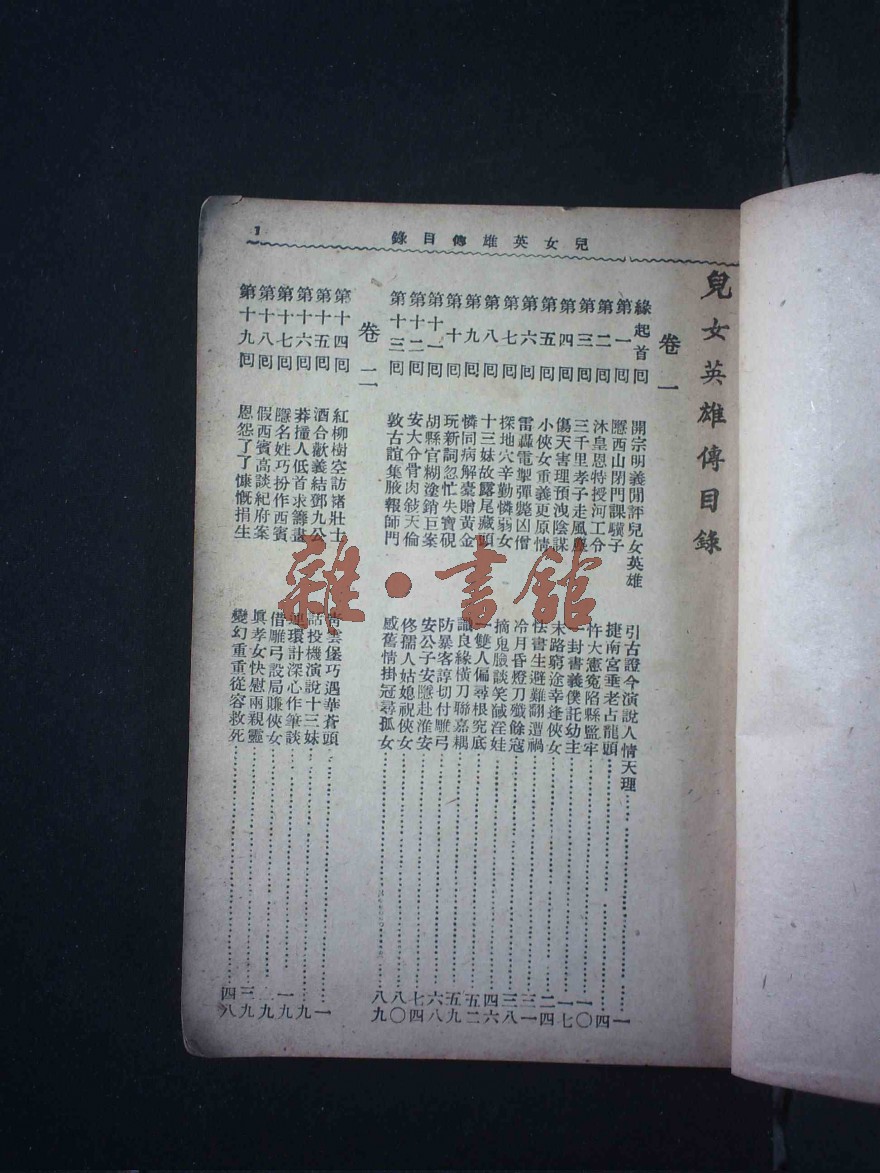 兒女英雄傳目錄 1
兒女英雄傳目錄
卷一
緣起首回 開宗明義閒評兒女英雄 引古證今演說人情天理 一
第一回 隱西山閉門課驥子 捷南宮垂老占龍頭 四
第二回 沐皇恩特授河工令 忤大憲冤陷縣監牢 一〇
第三回 三千里孝子走風塵 一封書義僕託幼主 一七
第四回 傷天害理預洩陰謀 末路窮途幸逢俠女 二四
第五回 小俠女重義更原情 怯書生避難翻遭禍 三一
第六回 雷轟電掣彈斃凶僧 冷月昏燈刀殲餘寇 三八
第七回 探地穴辛勤憐弱女 摘鬼臉談笑馘淫娃 四六
第八回 十三妹故露尾藏頭 一雙人偏尋根究底 五二
第九回 憐同病解橐贈黃金 識良緣橫刀聯嘉耦 五九
第十回 玩新詞忽忙失寶硯 防暴客諄切付雕弓 六八
第十一回 胡縣官糊塗銷巨案 安公子安隱赴淮安 七四
第十二回 安大令骨肉敍天倫 佟孺人姑媳祝俠女 八〇
第十三回 敦古誼集腋報師門 感舊情掛冠尋孤女 八九
卷二
第十四回 紅柳樹空訪渚壯士 青雲堡巧遇華蒼頭 一
第十五回 酒合歡義結鄧九公 話投機演說十三妹 九
第十六回 莽撞人低首求籌畫 連環計深心作筆談 一九
第十七回 隱名姓巧扮作西賓 借雕弓設局賺俠女 二九
第十八回 假西賓高談紀府案 眞孝女快慰兩親靈 三九
第十九回 恩怨了了慷慨捐生 變幻重重從容救死 四八
雜·書館